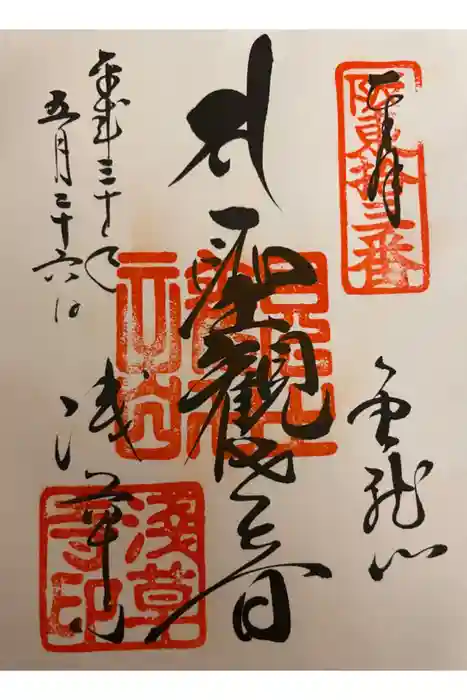 奉拝
阪東拾三番
金龍山
聖観世音
浅草寺
淺草寺印
平成三十年
五月二十六日